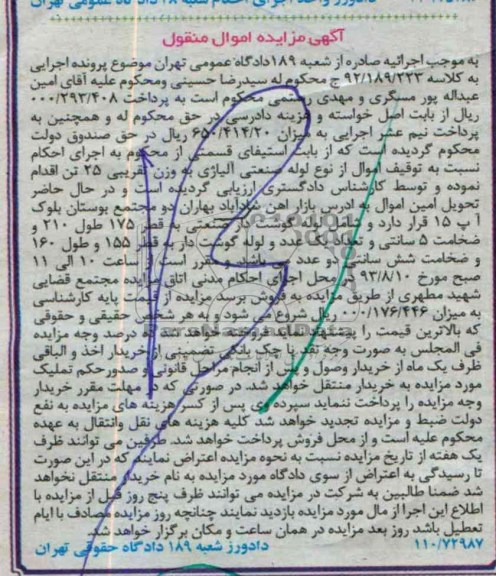 آگهی مزایده اموال منقول
به موجب اجرائیه صادره از شعبه ۱۸۹ دادگاه عمومی تهران موضوع پرونده اجرایی
به کلاسه ۹۲/۱۸۹/۲۲۳ ج محکوم له سیدرضا حسینی ومحکوم علیه آقای امین
عبداله پور مسگری و مهدی رستمی محکوم است به پرداخت ۰۰۰/۲۹۳/۴۰۸
ریال از بابت اصل خواسته و هزینه دادرسی در حق محکوم له و همچنین به
پرداخت نیم عشر اجرایی به میزان ۶۵۰/۴۱۴/۲۰ ریال در حق صندوق دولت
محکوم گردیده است که از بابت استیفای قسمتی از محکوم به اجرای احکام
نسبت به توقیف اموال از نوع لوله صنعتی آلیاژی به وزن تقریبی ۲۵ تن اقدام
نموده و توسط کارشناس دادگستری ارزیابی گردیده است و در حال حاضر
تحویل امین اموال به ادرس بازار اهن شادآباد بهاران دو مجتمع بوستان بلوک
آ پ ۱۵ قرار دارد و شامل لوله گوشت دار صنعتی به قطر ۱۷۵ طول ۲۱۰ و
ضخامت ۵ سانتی و تعداد یک عدد و لوله گوشت دار به قطر ۱۵۵ و طول ۱۶۰
و ضخامت شش سانتی دو عدد می باشد و مقرر است از ساعت ۱۰ الی ۱۱
صبح مورخ ۹۳/۸/۱۰ در محل اجرای احکام مدنی اتاق مزایده مجتمع قضایی
شهید مطهری از طریق مزایده به فروش برسد مزایده از قیمت پایه کارشناسی
به میزان ۰۰۰/۱۷۶/۴۴۶ ریال شروع می شود و به هر شخص حقیقی و حقوقی
که بالاترین قیمت را پیشنهاد نماید فروخته خواهد شد ده درصد وجه مزایده
فی المجلس به صورت وجه نقد یا چک بانکی تضمینی از خریدار اخذ و الباقی
ظرف یک ماه از خریدار وصول و پس از انجام مراحل قانونی و صدورحکم تملیک
مورد مزایده به خریدار منتقل خواهد شد. در صورتی که در مهلت مقرر خریدار
وجه مزایده را پرداخت ننماید سپرده وی پس از کسر هزینه های مزایده به نفع
دولت ضبط و مزایده تجدید خواهد شد کلیه هزینه های نقل وانتقال به عهده
محکوم علیه است و از محل فروش پرداخت خواهد شد. طرفین می توانند ظرف
یک هفته از تاریخ مزایده نسبت به نحوه مزایده اعتراض نمایند که در این صورت
تا رسیدگی به اعتراض از سوی دادگاه مورد مزایده به نام خریدار منتقل نخواهد
شد ضمنا طالبین به شرکت در مزایده می توانند ظرف پنج روز قبل از مزایده با
اطلاع این اجرا از مال مورد مزایده بازدید نمایند چنانچه روز مزایده مصادف با ایام
تعطیل باشد روز بعد مزایده در همان ساعت و مکان برگزار خواهد شد.
۱۱۰/۷۲۹۸۷ دادورز شعبه ۱۸۹ دادگاه حقوقی تهران